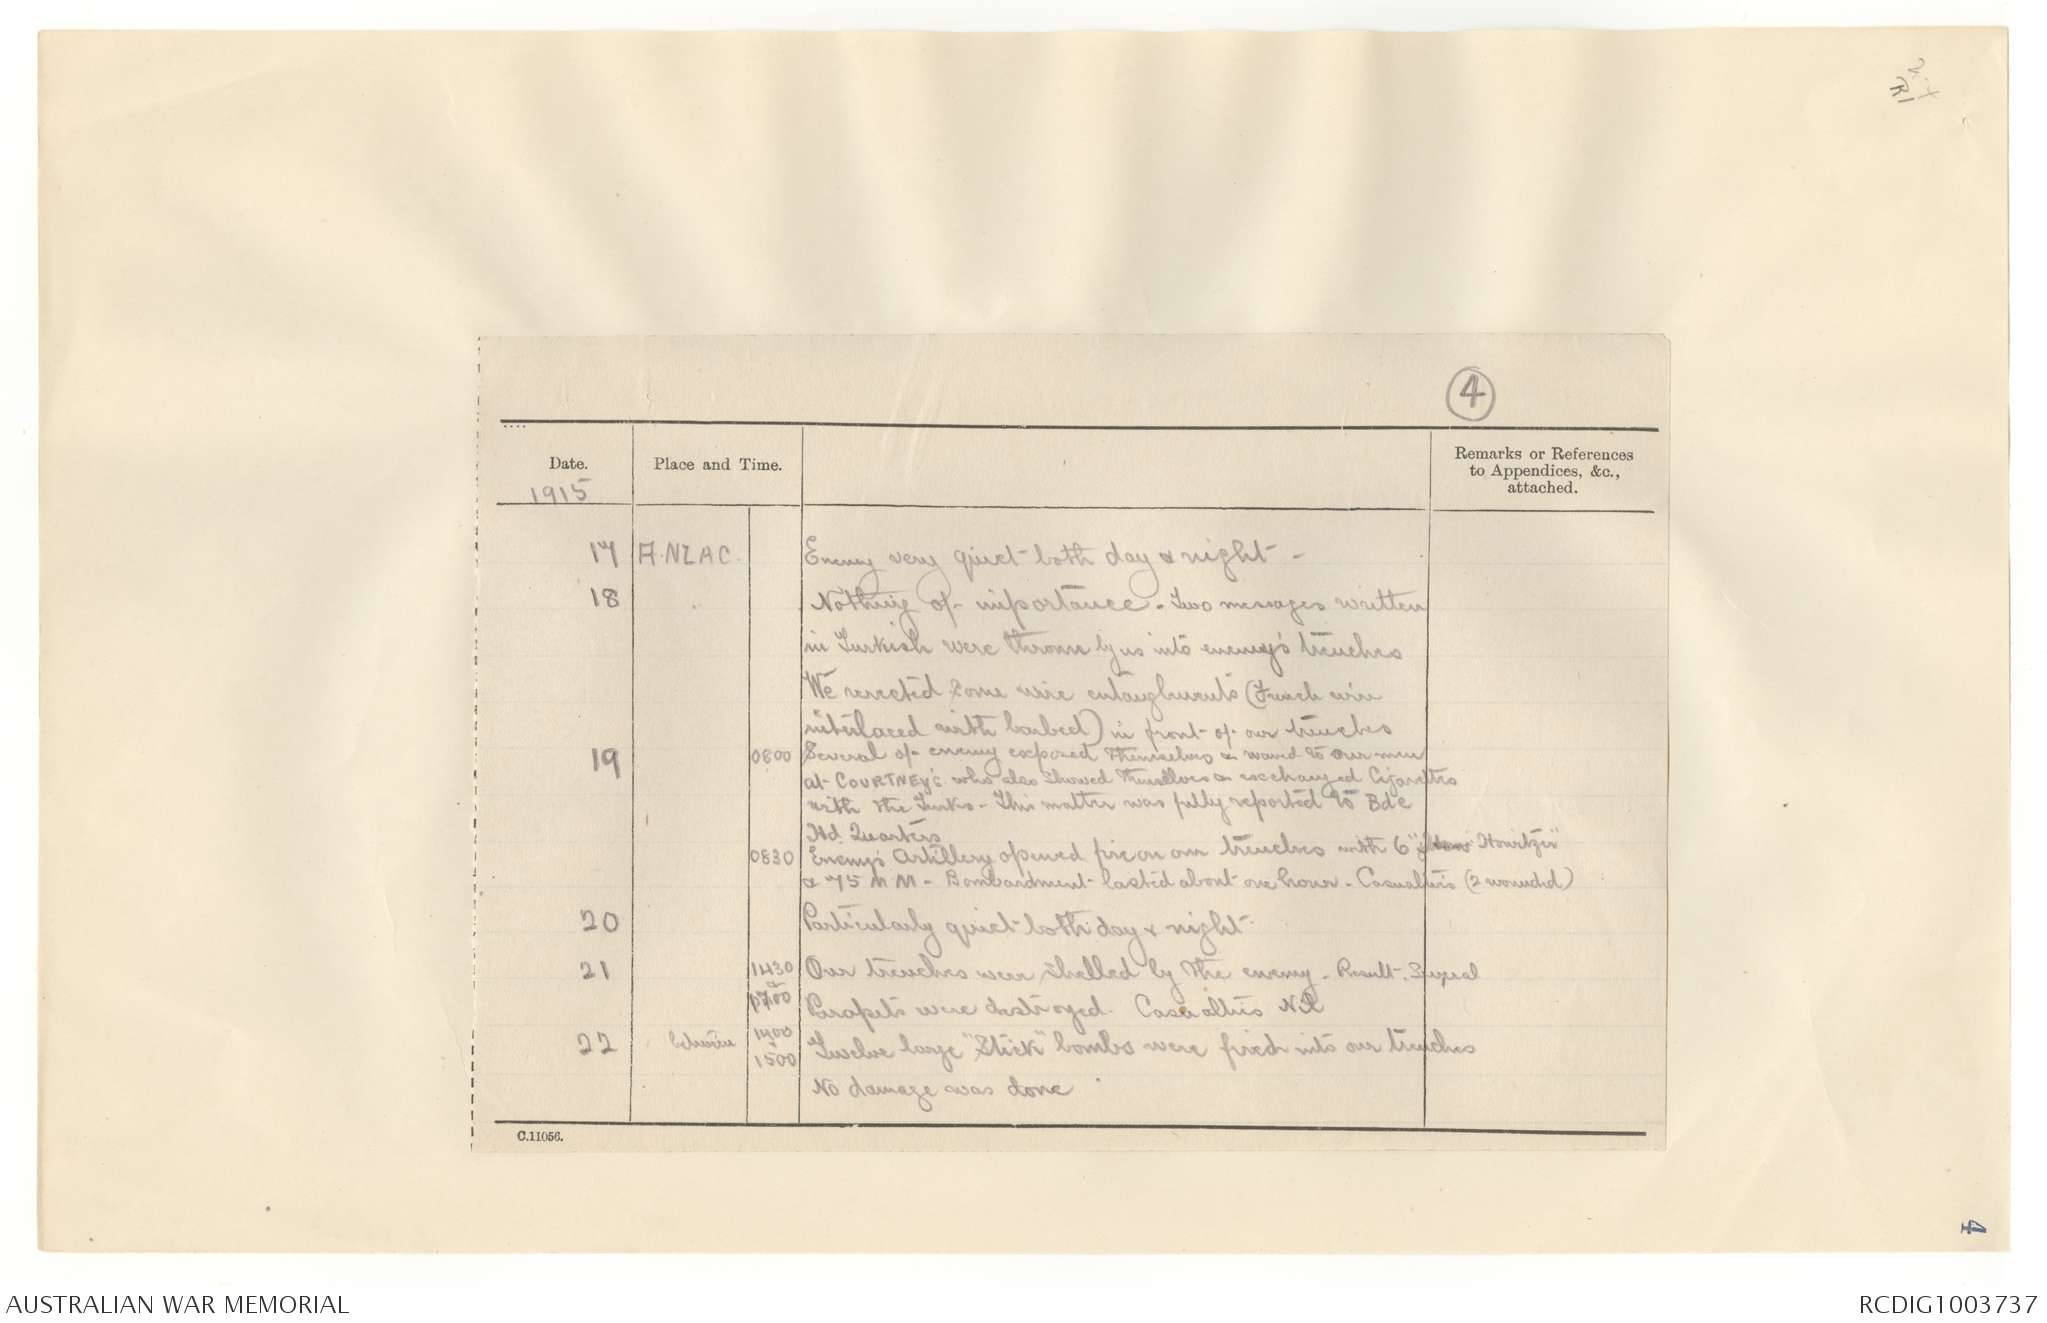 4
Date.
1915
Place and Time.
Remarks or References
to Appendices, &c.,
attached.
17 A.NZAC. Enemy very quiet both day & night -
18 Nothing of importance. Two messages written
in Turkish were thrown by us into enemy's trenches
We erected some wire entanglements (French wire
interlaced with barbed) in front of our trenches
19 0800 Several of enemy exposed themselves & waved to our men
at COURTNEY'S who also showed themselves & exchanged Cigarettes
with the Turks - This matter was fully reported to Bde
Hd. Quarters
0830 Enemy's Artillery opened fire on our trenches with 6" Howitzer"
& 75 MM - Bombardment lasted about one hour - Casualties (2 wounded)
20 Particularly quiet both day & night
21 1430 Our trenches were shelled by the enemy - Result. Several
1700 Parapets were destroyed. Casualties Nil
22 between 1400
1500 Twelve large "Stick" bombs were fired into our trenches
No damage was done
C.11056.
4
AUSTRALIAN WAR MEMORIAL
RCDIG1003737